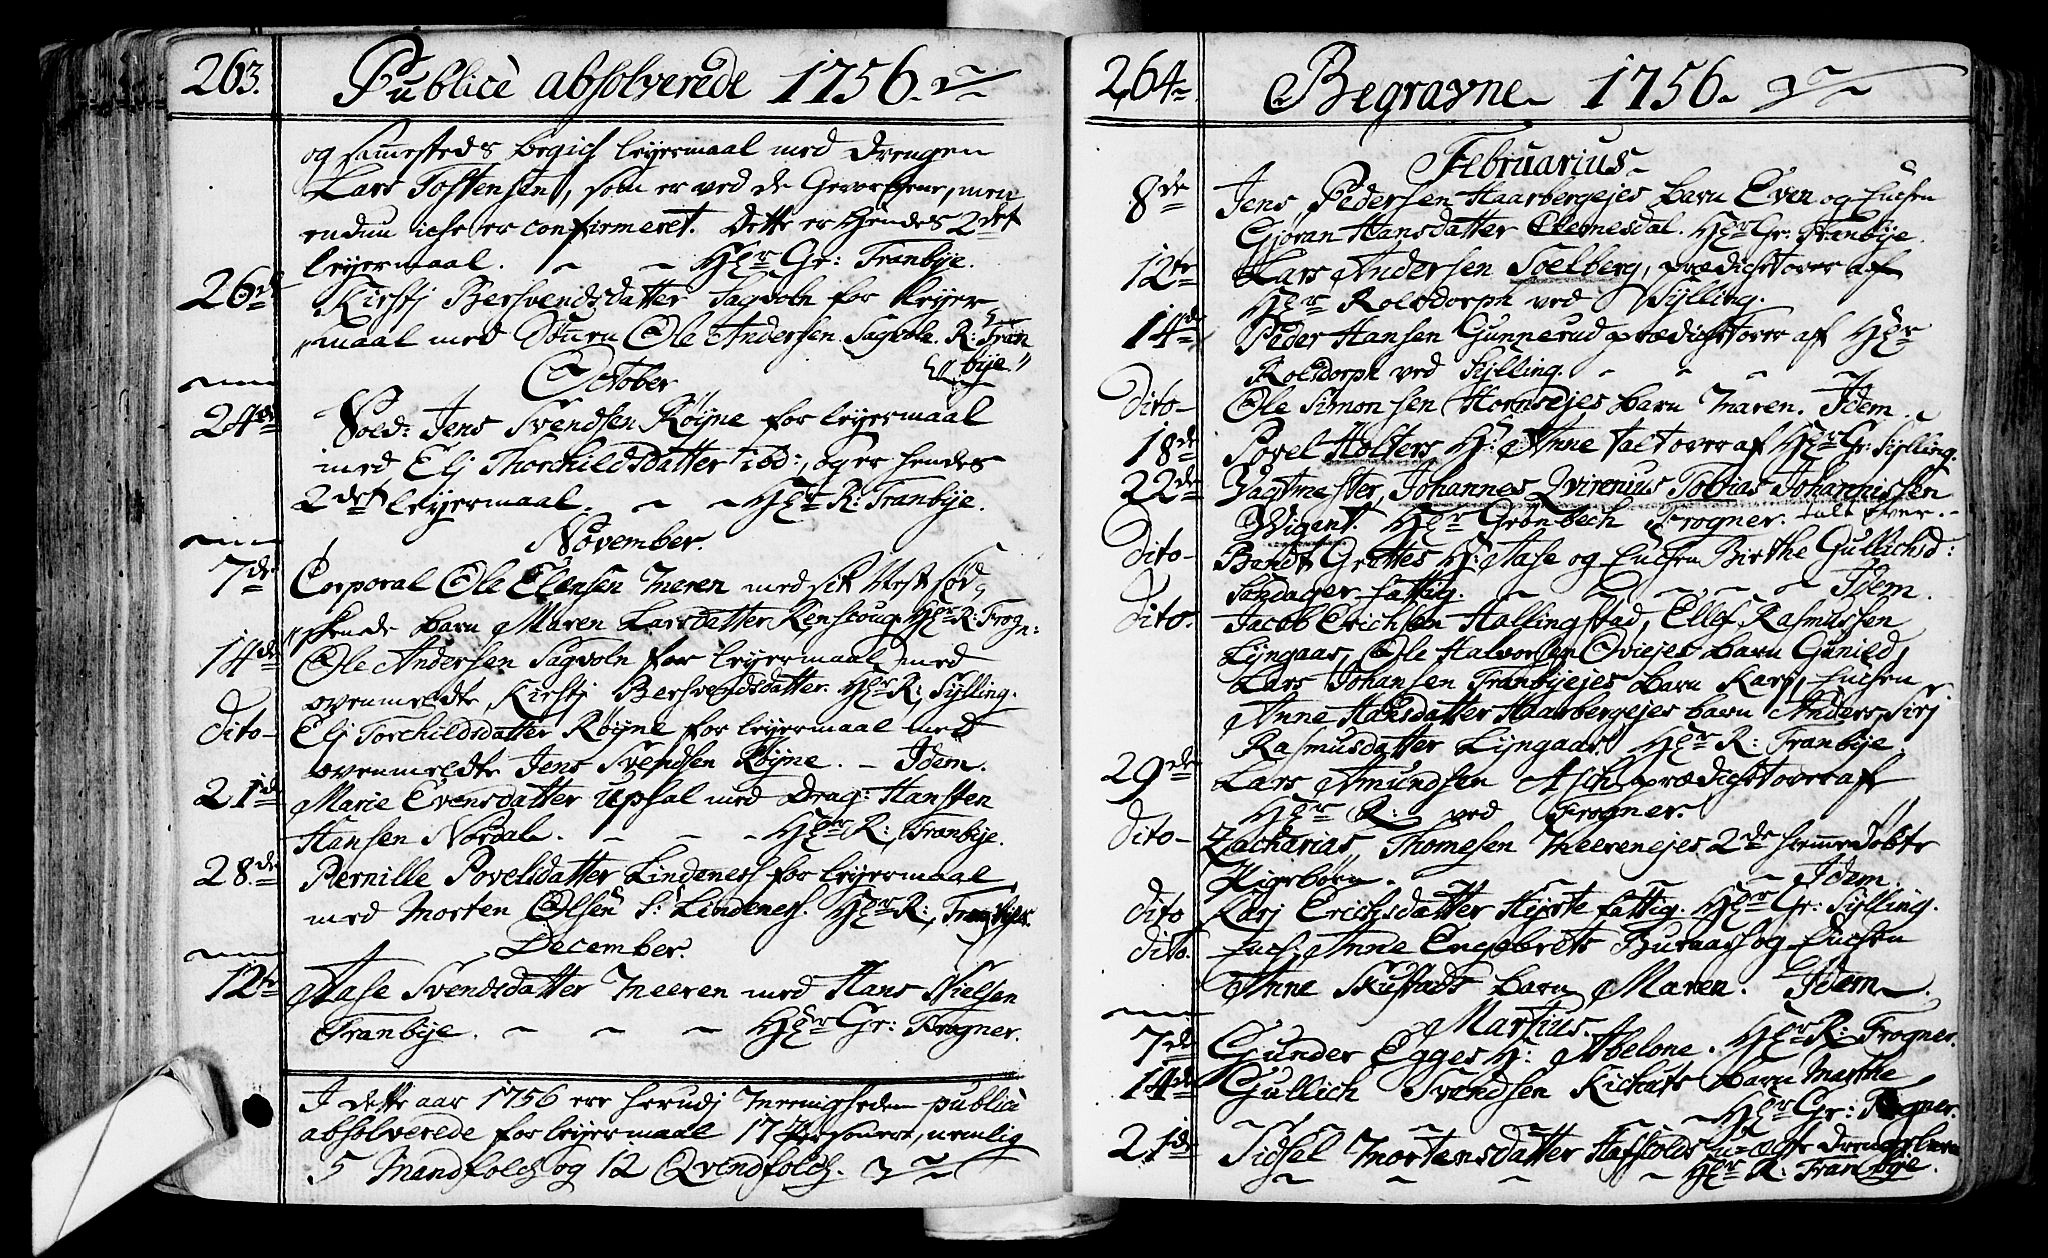 263.
Publicè absolverede 1756.
og sam̄esteds begich leyermaal med Drengen
Lars Tostensen, som er ved de Gevorbene, men
endnu iche er confirmeret. Dette er Hendes 2det
leyermaal. Hr Gr: Tranbye.
26de Kirstj Bersvendsdatter Sagvoln for leyer
maal med Ole Andersen Sagvoln. R: Tran
bye
October
24de Sold: Jens Svendsen Røyne for leyermaal
med Elj Thorchildsdatter ibd:, og er hendes
2det leyermaal. Hr R: Tranbye.
November.
7de Corporal Ole Elensen Meren med sit
barn Maren Larsdatter Renscoug Hr R: Frogn:
14de Ole Andersen Sagvoln for leyermaal med
ovenmeldte Kirstj Bersvendsdatter. Hr R: Sylling.
dito Elj Torchildsdatter Røyne for leyermaal med
ovenmeldte Jens Svendsen Røyne. Idem.
21de Marie Evensdatter Upsal med Drag: Hansten
Hansen Nordal. Hr R: Tranbye.
28de Pernille Povelsdatter Lindenes for leyermaal
med Morten Olsen S: Lindenes. Hr R: Tranbye.
December.
12te Aase Svendsdatter Meeren med Hans Nielsen
Tranbye. Hr Gr: Frogner.
I dette aar 1756 ere herudj Meenigheden publicè
absolverede for leyermaal 17 Personer, nemlig
5 Mandfolch og 12 Qvindfolch.
264
Begravne 1756.
Februarius
8de Jens Pedersen Haarbergejes barn Even og Enchen
Gjøran Hansdatter Hr Gr: Tranbye.
12te Lars Andersen Soelberg, prædichet over af
Hr Rolsdorph ved Sylling.
14de Peder Hansen Gunnerud prædichet over af Hr
Rolsdorph ved Sylling.
Dito Ole Simonsen Hornsejes barn Maren. Idem.
18de Povel Holters H: Anne talt over af Hr Gr: Sylling.
22de Jagtmester, Johannes Qvirenius Tobias Johannissen
Wigent. Hr Grønbech Frogner. talt over.
Dito Bendt Grøttes H: Aase og Enchen Birthe Gullichsd:
fattig. Idem.
Dito Jacob Erichsen Hallingstad, Ellef Rasmussen
Lyngaas, Ole Halvorsen Oviejes barn Gunild,
Lars Johansen Tranbyejes barn Karj, Enchen
Anne Hansdatter Haarbergejes barn Anders, Sirj
Rasmusdatter Lyngaas Hr R: Tranbye.
29de Lars Amundsen Asch prædichet over af
Hr R: ved Frogner.
Dito Zacharias Thomesen Meerenejes 2de hiem̄edøbte
Pigebørn. Idem.
dito Karj Erichsdatter fattig. Hr Gr: Sylling.
dito. Anne Engebrets Buraas og Enchen
Anne Skustads barn Maren. Idem.
Martius.
7de Gunder Egges H: Abelone. Hr R: Frogner.
14de Gullich Svendsen barn Marthe
Hr Gr: Frogner.
21de Sidsel Mortensdatter u-ægte drengebarn
Hr R: Tranbye.